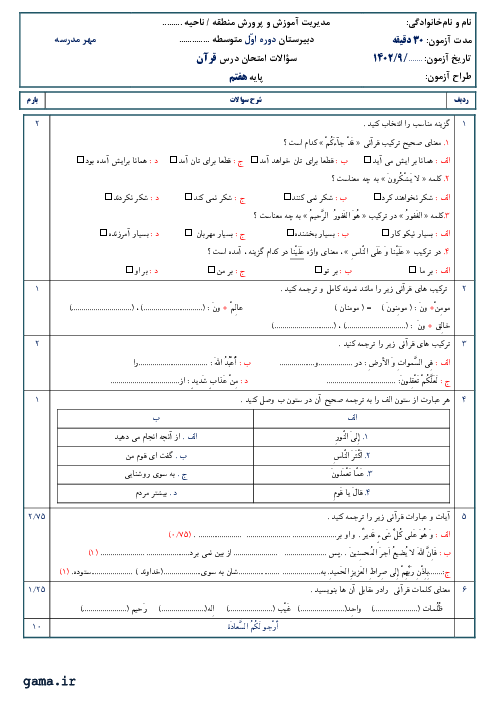 نام و نام‌خانوادگی: مدیریت آموزش و پرورش منطقه / ناحیه .........
مدت آزمون: 30 دقیقه دبیرستان دوره اوّل متوسطه ............. مهر مدرسه
تاریخ آزمون: ....... /1402/9 سؤالات امتحان درس قرآن
طراح آزمون: پایه هفتم
ردیف شرح سوالات بارم
1 گزینه مناسب را انتخاب کنید . 2
1. معنای صحیح ترکیب قرآنی « قَدْ جاءَکُمْ » کدام است ؟
الف : همانا برایش می آید ب : قطعا برای تان خواهد آمد ج : قطعا برای تان آمد د : همانا برایش آمده بود
2. کلمه « لا یَشْکُرونَ » به چه معناست ؟
الف : شکر نخواهند کرد ب : شکر نمی کنند ج : شکر نمی کند د : شکر نکردند
3.کلمه « الغَفورُ » در ترکیب « هُوَ الغَفورُ الرَّحیمُ » به چه معناست ؟
الف : بسیار نیکو کار ب : بسیار بخشنده ج : بسیار مهربان د : بسیار آمرزنده
4. در ترکیب « عَلَینا وَ عَلَی النّاسِ » ، معنای واژه عَلَینا در کدام گزینه ، آمده است ؟
الف : بر ما ب : بر تو ج : بر من د : بر او
2 ترکیب های قرآنی زیر را مانند نمونه کامل و ترجمه کنید . 1
مومِنْ+ ونَ : ( مومِنونَ ) = ( مومنان ) عالِمْ + ونَ : (............................) ، (............................)
خالِق + ونَ : (............................) ، (............................)
3 ترکیب های قرآنی زیر را ترجمه کنید . 2
الف : فِی السَّمواتِ وَ الأرضِ : در ................و................ ب : أعْبُدُ اللهَ : ............................را
ج : لَعَلَّکُمْ تَعقِلونَ: ............................ د : مِنْ عَذابٍ شَدیدٍ : از............................
4 هر عبارت از ستون الف را به ترجمه صحیح آن در ستون ب وصل کنید . 1
الف ب
1. إلَی النّورِ الف . از آنچه انجام می دهید
2. أکْثَرَ النّاسِ ب . گفت ای قوم من
3. عَمّا تَعْمَلونَ ج . به سوی روشنایی
4. قالَ یا قَومِ د . بیشتر مردم
5 آیات و عبارات قرآنی زیر را ترجمه کنید . 2/75
الف : وَ هُوَ عَلی کُلِّ شَیءٍ قَدیرٌ . و او بر.................. .................. . (0/75)
ب : فَإنَّ اللهَ لا یُضیعُ أجرَ المُحسِنینَ . پس .................. .................. از بین نمی برد.................. (1)
ج:.......بِإذنِ رَبِّهِمْ إلی صِراطِ العَزیزِ الحَمیدِ. به.................. ..................شان به سوی..................(خداوند ) ..................ستوده. (1)
6 معنای کلمات قرآنی رادر مقابل آن ها بنویسید . 1/25
ظُلُمات (..................) واحِد(..................) غَیْب (..................) إله(..................) رَحیم (..................)
أرْجو لَکُمُ السَّعادَة 10
gama.ir